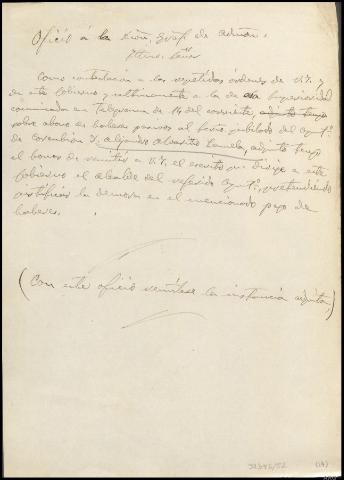 Oficio á la Dión. Gral de admón.
Iltmo. Señor
Como contestación a las repetidas órdenes de V.I. y
en este Gobierno y ultimamente a la de esa Superioridad
comunicada en telegrama de 14 del corriente, adjunto tengo
sobre abono de haberes pasivos al jubilado del Aytº.
de Corcubión D. Alejandro Lamela, adjunto tengo
el honor de remitir a V.I. el escrito que dirige a este
Gobierno el alcalde del referido Aytº., pretendiendo
justificar la demora en el mencionado pago de
haberes.
(Con este oficio remítese la instancia adjunta)
32346/52
(14)